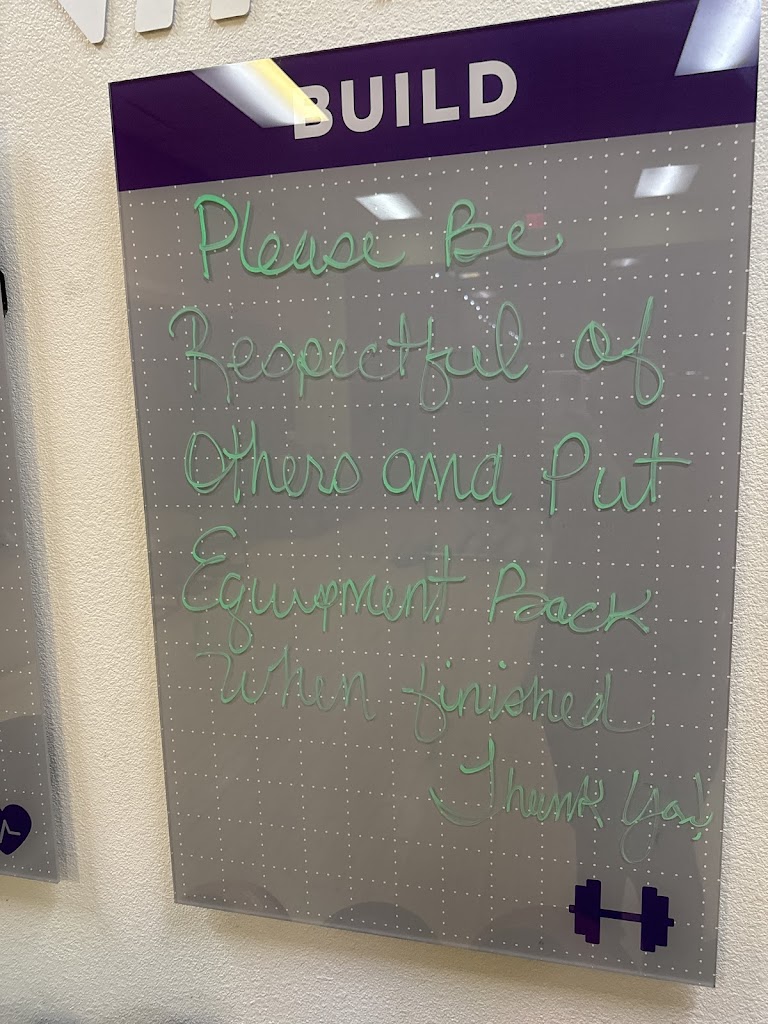 BUILD
Please Be
Respectful of
Others and Put
Equipment Back
When finished
Thank You!